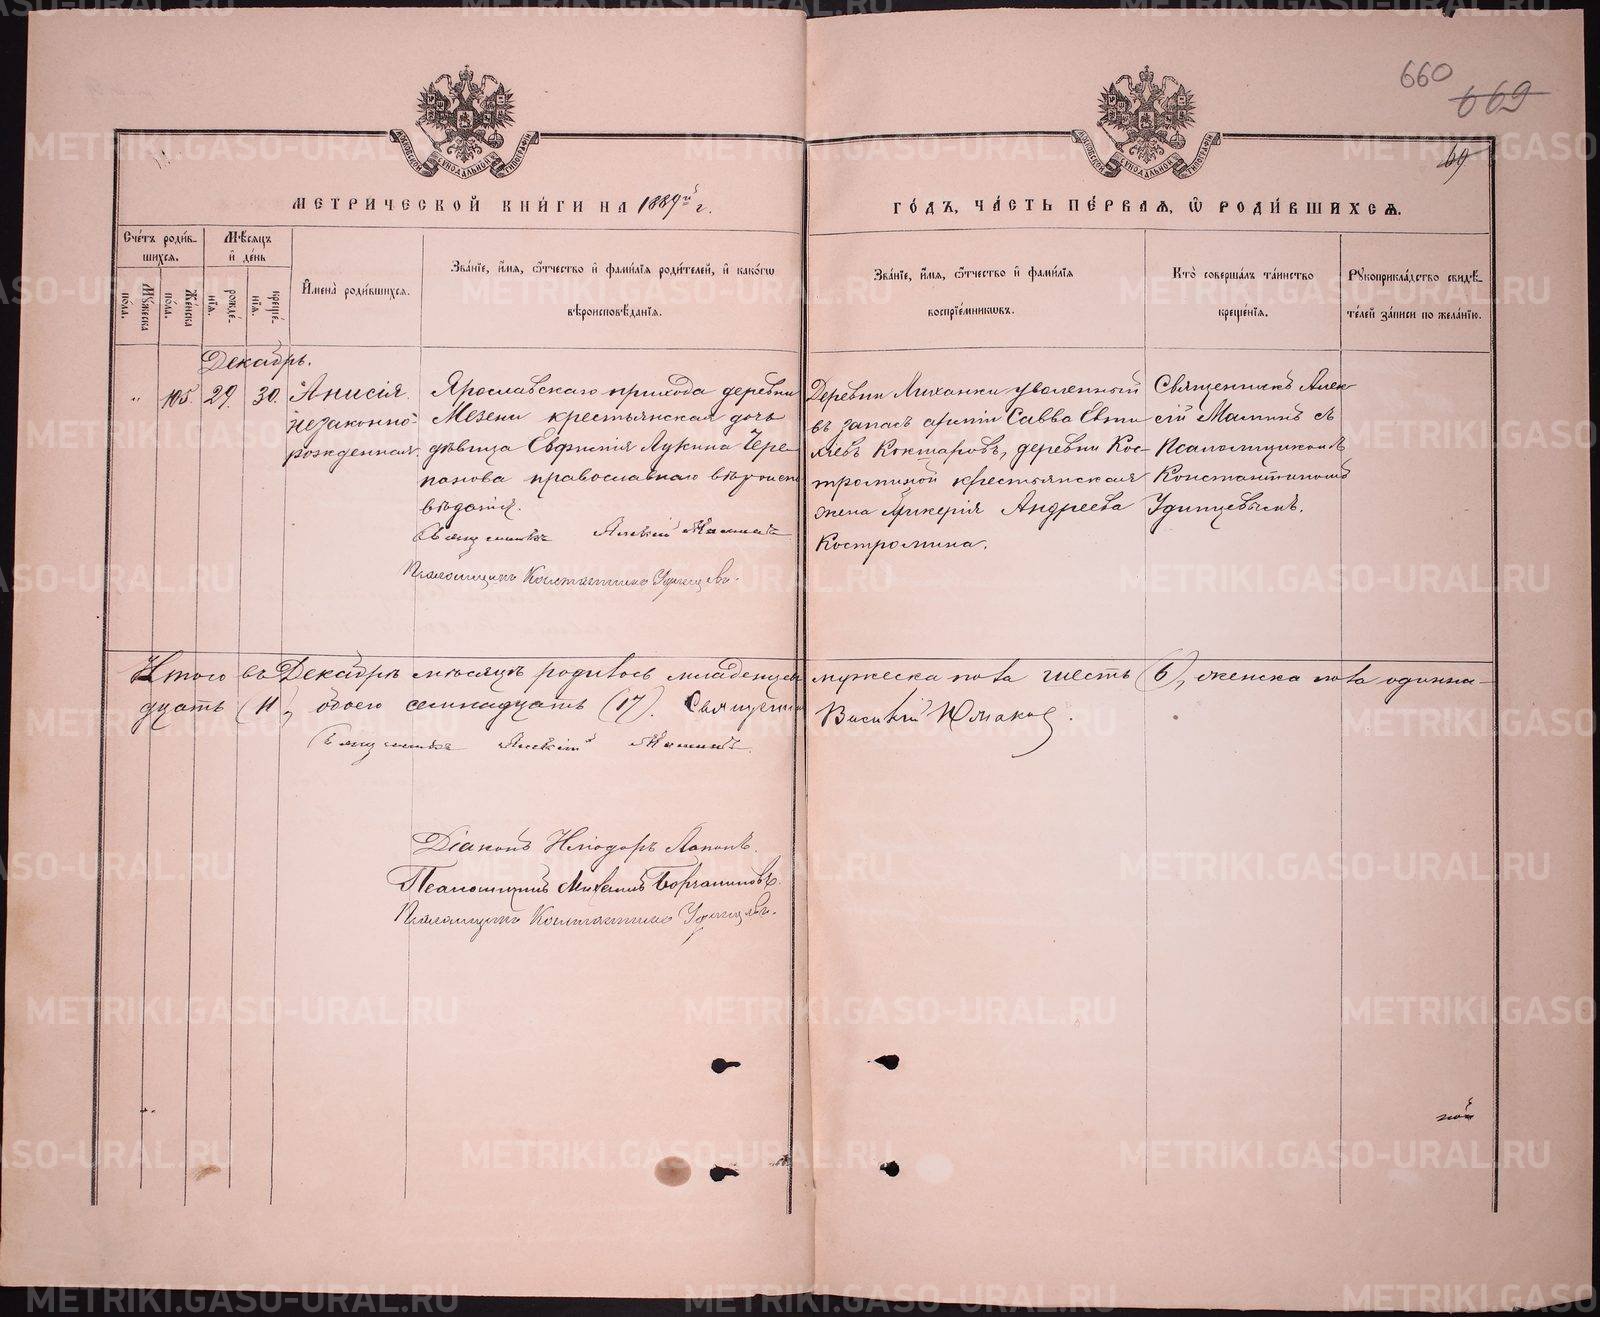 660
669
69
МЕТРИЧЕСКОЙ КНИ́ГИ НА 1889й г.
ГО́ДЪ, ЧА́СТЬ ПЕ́РВАѦ, Ѡ҆ РОДИ́ВШИХСѦ.
Сче́тъ роди́в-
шихсѧ.
Мѣ́сѧцъ
и҆ де́нь
Мꙋ́жеска
по́ла.
Же́нска
по́ла.
рожде́-
нїѧ.
креще́-
нїѧ.
И҆мена̀ роди́вшихсѧ.
Зва́нїе, и҆́мѧ, ѻ҆́тчество и҆ фами́лїѧ роди́телей, и҆ како́гѡ
вѣроисповѣ́данїѧ.
Зва́нїе, и҆́мѧ, ѻ҆́тчество и҆ фами́лїѧ
воспрїе́мникѡвъ.
Кто̀ соверша́лъ та́инство
креще́нїѧ.
Рꙋкоприкла́дство свидѣ́-
телей за́писи по жела́нїю.
Декабрь.
" 105. 29. 30. Анисія
незаконно-
рожденная.
Ярославскаго прихода деревни
Мезени крестьянская дочь
дѣвица Евфимія Лукина Чере-
панова православнаго вѣроиспо
вѣданія.
Священникъ Алексій Маминъ
Псаломщикъ Константинъ Удинцевъ.
Деревни Лиханки уволенный
въ запасъ арміи Савва Евти
хіевъ Кокшаровъ, деревни Кос-
троминой крестьянская
жена Гликерія Андреева
Костромина.
Священникъ Алек
сій Маминъ съ
Псаломщикомъ
Константиномъ
Удинцевымъ.
Итого въ Декабрѣ мѣсяцѣ родилось младенцевъ мужеска пола шесть (6), женска пола одинна-
дцать (11), обоего семнадцать (17). Священникъ Василій Юмаковъ.
Священникъ Алексій Маминъ.
Діаконъ Иліодоръ Поповъ.
Псаломщикъ Михаилъ
Псаломщикъ Константинъ Удинцевъ.